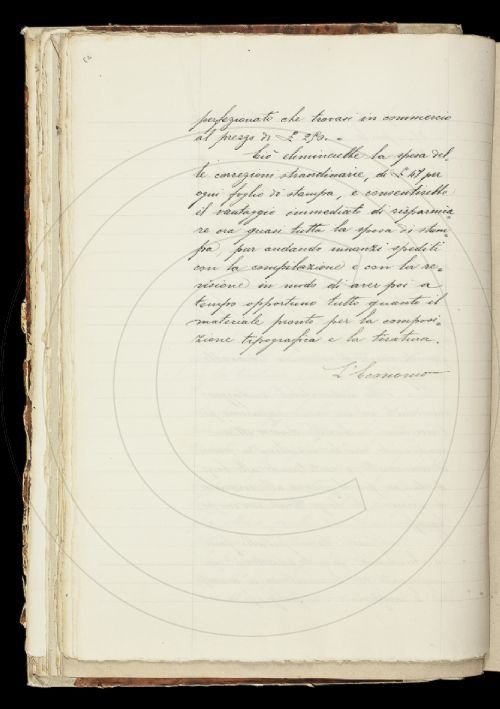 perfezionato che trovasi in commercio
al prezzo di £ 250. =
Ciò eliminerebbe la spesa del,
le correzioni straordinarie, di £ 47 per
ogni foglio di stampa, e consentirebbe
il vantaggio immediato di risparmia
re ora quasi tutta la spesa di stam=
pa, pur andando innanzi spediti
con la compilazione e con la re=
visione in modo di aver poi a
tempo opportuno tutto quanto il
materiale pronto per la composi=
zione tipografica e la tiratura.
L'Economo